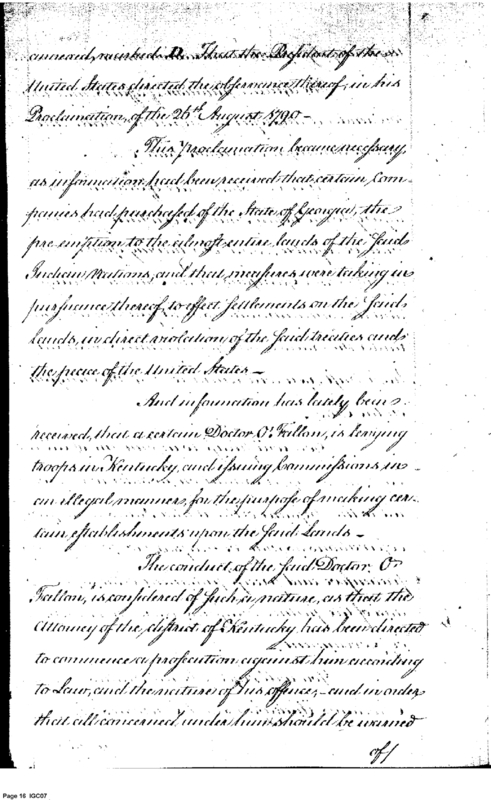 annexed, marked D. That the President of the
United States directed the observance thereof, in his
Proclamation, of the 26th August 1790 –
This proclamation became necessary
as information, had been received that certain Com
panies had purchased of the State of Georgia, the
pre emption to the almost entire lands of the said
Indian Nations, and that, measures were taking in
pursuance thereof, to effect settlements on the said
Lands, in direct violation of the said treaties and
the peace of the United States –
And information has lately been
received, that a certain Doctor O'Fallon, is levying
troops in Kentucky, and issuing Commissions in
an illegal manner, for the purpose of making cer-
tain, establishments upon the said Lands –
The conduct of the said Doctor O'
Fallon, is considered of such a nature, as that the
Attorney of the district of Kentucky has been directed
to commence a prosecution against him according
to Law, and the nature of his offence, – and in order
that all concerned under him should be warned
of/
Page 16 IGC07